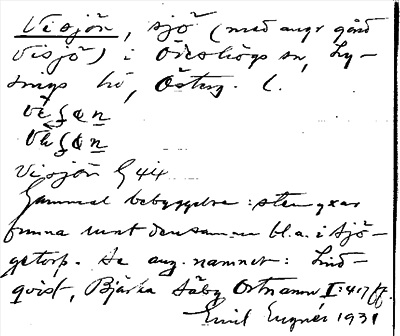 Visjön, sjö (med angr gård
Visjö) i Ödeshögs sn, Ly-
sings hd, Österg. l.
Visjön G 44
Gammal bebyggelse: stenyxor
funna runt densamma bl.a. i Sjö-
getorp. Se ang. namnet: Lind-
qvist, Bjärka Säby Ortnamn I: 417 ff.
Emil Eugnér 1931